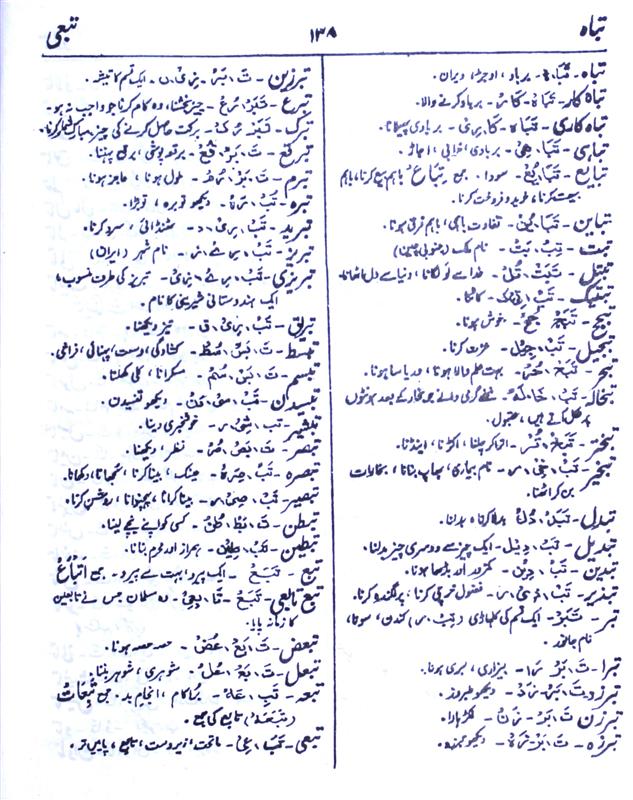 تباہ
۱۳۸
تبعی
تباہ - تَبَاہ - برباد، اوجڑا، ویران.
تباہ کار - تَبَاہ - کَار - برباد کرنے والا.
تباہ کاری - تَبَاہ - کَا، رِی - بربادی پھیلانا.
تباہی - تَبَا، ہِی - بربادی، خرابی، اجاڑ.
تبایع - تَبَا، یُع - سودا - جمع تباع باہم بیع کرنا، باہم
بیعت کرنا، خرید و فروخت کرنا.
تباین - تَبَا، یُن - تفاوت باہمی، باہم فرق ہونا.
تبت - تِب، بَت - نام ملک (جنوبی چین)
تبتل - تَبَت، تُل - خدا سے لو لگانا، دنیا سے دل اٹھانا.
تبتیک - تَب، تِیک - کاٹنا.
تبجح - تَبَج، جُح - خوش ہونا.
تبجیل - تَب، جِیل - عزت کرنا.
تبحر - تَبَح، حُر - بہت علم والا ہونا، دریا سا ہونا.
تبخالہ - تَب، خَا، لَہ - چھالے گرمی والے جو بخار کے بعد ہونٹوں
پر نکل آتے ہیں،
تبختر - تَبَخ، تُر - اترا کر چلنا، اکڑنا، اینڈنا.
تبخیر - تَب، خِی، ر - نام بیماری، بھاپ بنانا، بخارات
بن کر اٹھنا.
تبدل - تَبَد، دُل - بدلنا.
تبدیل - تَب، دِیل - ایک چیز سے دوسری چیز بدلنا.
تبدین - تَب، دِین - کمزور اور بڈھا ہونا.
تبذیر - تَب، ذِی، ر - فضول خرچی کرنا، پراگندہ کرنا.
تبر - تَبَر - ایک قسم کی کلہاڑی (تِب، ر) کندن، سونا،
نام جانور.
تبرا - تَ، بَر، رَا - بیزاری، بری ہونا.
تبرزد - تَ، بَر، زَد - دیکھو طبرزد.
تبرزن - تَ، بَر، زَن - لکڑہارا.
تبرزہ - تَ، بَر، زَہ - دیکھو
تبرزین - تَ، بَر، زِی، ن - ایک قسم کا تیشہ.
تبرع - تَبَر، رُع - چیز بخشنا، وہ کام کرنا جو واجب نہ ہو.
تبرک - تَبَر، رُک - برکت حاصل کرنے کی چیز، مبارک شمار کرنا.
تبرقع - تَ، بَر، قُع - برقعہ پوشی، برقع پہننا.
تبرم - تَ، بَر، رُم - ملول ہونا، عاجز ہونا.
تبرہ - تَب، رَہ - دیکھو توبرہ، توبڑا.
تبرید - تَب، رِی، د - ٹھنڈائی، سرد کرنا.
تبریز - تَب، رے، ز - نام شہر (ایران)
تبریزی - تَب، رے، زِی - تبریز کی طرف منسوب،
ایک ہندوستانی شیرینی کا نام.
تبریق - تَب، رِی، ق - تیز دیکھنا.
تبسط - تَ، بَس، سُط - کشادگی، وسعت، پہنائی، فراخی.
تبسم - تَ، بَس، سُم - مسکرانا، کلی کھلنا.
تبسیدن - تَب، سِی، دَن - دیکھو تفسیدن.
تبشیر - تب، شِی، ر - خوشخبری دینا.
تبصر - تَ، بَص، صُر - نظر، دیکھنا.
تبصرہ - تَب، صِرَہ - عینک، بینا کرنا، سمجھانا، دکھانا.
تبصیر - تَب، صِی، ر - بینا کرنا، پہچنوانا، روشن کرنا.
تبطن - تَ، بَط، طُن - کسی کو اپنے نیچے لینا.
تبطین - تَب، طِین - ہمراز اور محرم بنانا.
تبع - تَبَع - ایک پیرو، بہت سے پیرو - جمع اَتْبَاع
تبع تابعی - تَبَع - تَا، بِعِی - وہ مسلمان جس نے تابعین
کا زمانہ پایا.
تبعض - تَ، بَع، عُض - حصہ حصہ ہونا.
تبعل - تَ، بَع، عُل - شوہری، شوہر بننا.
تبعہ - تَبِ، عَہ - برا کام، انجام بد - جمع تبعات
(تَبَعَہ) تابع کی جمع.
تبعی - تَب، عِی - ماتحت، زیردست، تابع، پایین تر.